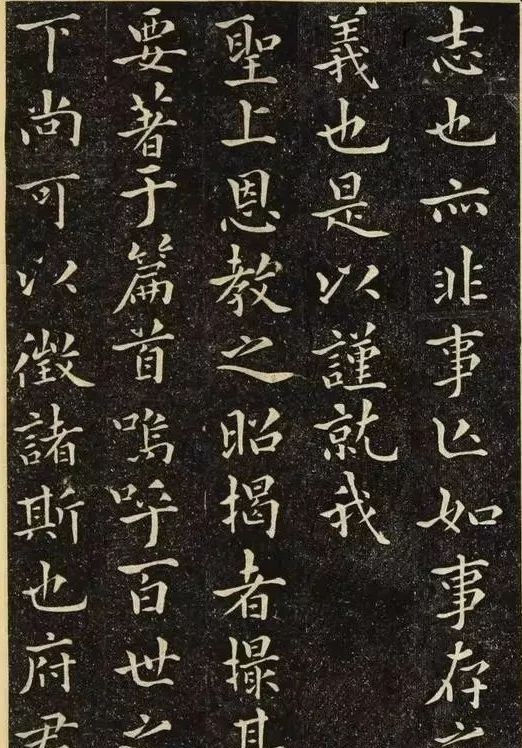 志也亦非事亡如事存之
義也是以謹就我
聖上恩教之昭揭者撮其
要著于篇首嗚呼百世之
下尚可以徵諸斯也府君